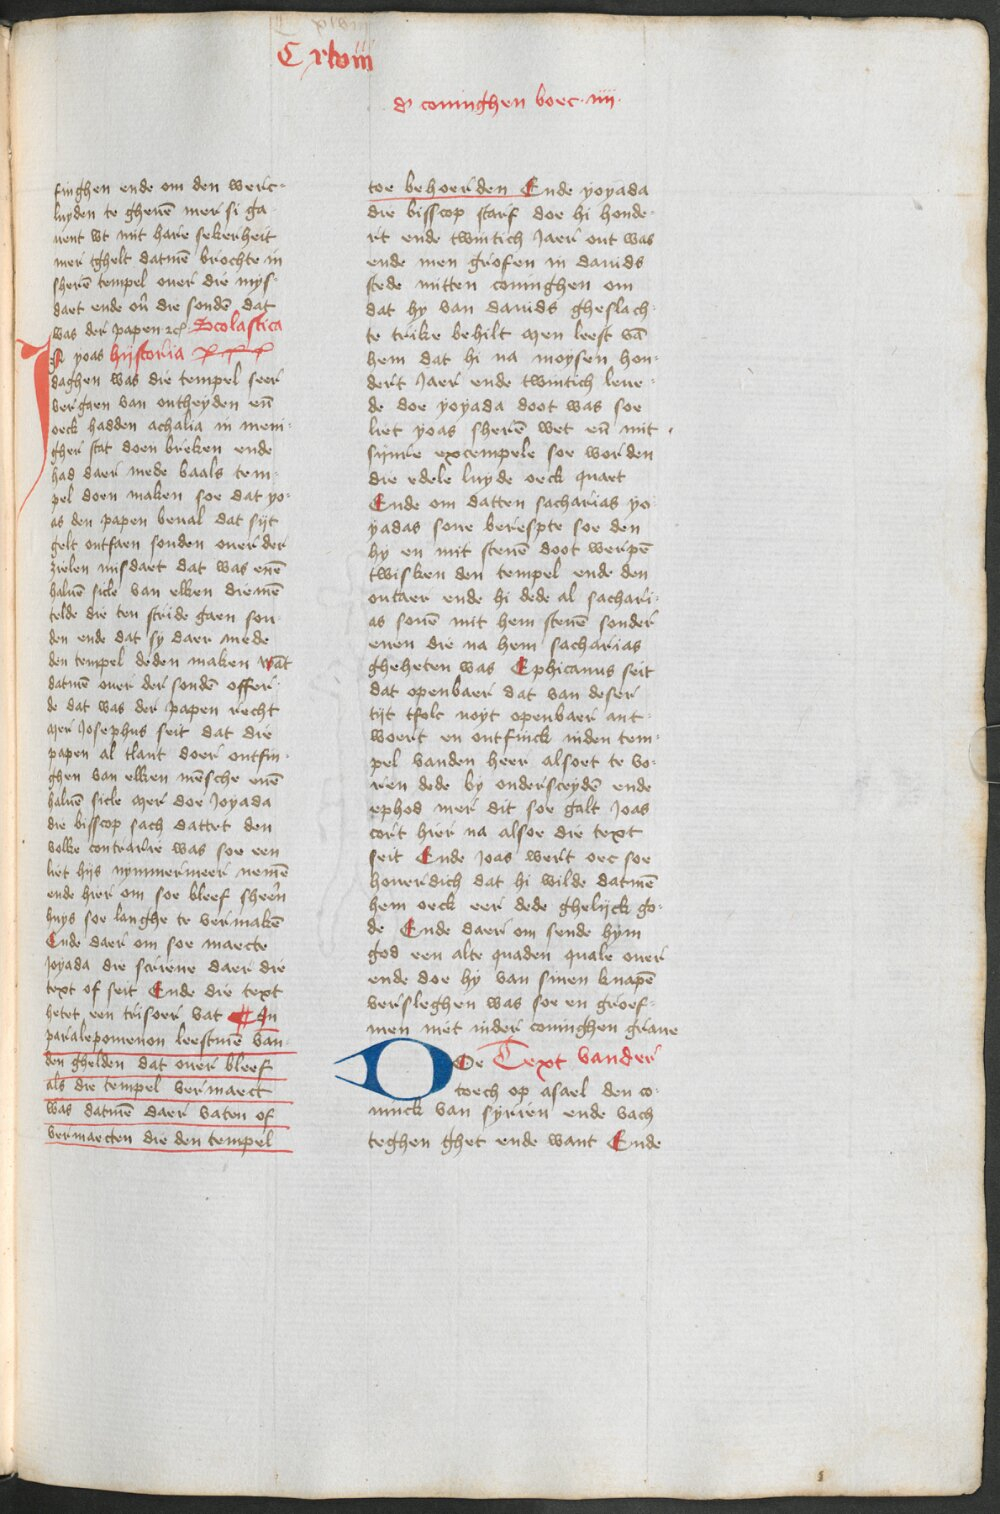 C xlviii
d' coninghen boec · iiii ·
finghen ende om den werc-
luyden te gheuē mer si ga-
uent wt mit hare sekerheit
mer tghelt datmē brochte in
sherē tempel ouer die mys-
daet ende ou̅ die sondē dat
was der papen Scolastica
IN yoas hijstoria
daghen was die tempel seer
vergaen van ontheyden en̄
oeck hadden achalia in meni-
gher stat doen breken ende
had daer mede baals tem-
pel doen maken soe dat yo-
as den papen beual dat sijt
gelt ontfaen souden ouer der
zielen misdaet dat was enē
haluē sicle van elken diemē
telde die ten stride gaen sou-
den ende dat sy daer mede
den tempel deden maken wāt
datmē ouer der sondē offer-
de dat was der papen recht
Mer Josephus seit dat die
papen al tlant doer ontfin-
ghen van elken mēsche enē
haluē sicle Mer doe Joyada
die bisscop sach dattet den
volke contrarie was soe een
liet hijs nymmermeer nemē
ende hier om soe bleef sheērn
huys soe langhe te vermakē
Ende daer om soe maecte
Joyada die scriene daer die
text of seit Ende die text
hetet een trisoer vat ¶ In
paralepomenon leestmē van-
den ghelden dat ouer bleef
als die tempel vermaect
was datmē daer vaten of
vermaecten die den tempel
toe behoerden Ende yoyada
die bisscop starf doe hi honde-
rt ende twintich Jaer out was
ende men grofen in dauids
stede mitten coninghen om
dat hy van dauids gheslach-
te trike behilt Men leest vā
hem dat hi na moysen hon-
dert Jaer ende twintich leue-
de doe yoyada doot was soe
liet yoas sherē wet en̄ mit
sijnre excempele soe worden
die edele luyde oeck quaet
Ende om datten sacharias yo-
yadas sone berespte soe den
hy en mit stenē doot werpē
twisken den tempel ende den
outaer ende hi dede al sachari-
as sonē mit hem stenē sonder
enen die na hem sacharias
gheheten was Ephicanus seit
dat openbaer dat van deser
tijt tfolc noyt openbaer ant-
woert en ontfinck inden tem-
pel vanden heer alsoet te vo-
ren dede by ondersceydē ende
ephod mer dit soe galt Joas
cort hier na alsoe die text
seit Ende Joas wert oec soe
houerdich dat hi wilde datmē
hem oeck eer dede ghelijck go-
de Ende daer om sende hym
god een alte quaden quale ouer
ende doe hy van sinen knapē
versleghen was soe en groef-
men niet inder coninghen graue
DOe Text vander
toech op asael den co-
ninck van syrien ende vach
teghen ghet ende want Ende